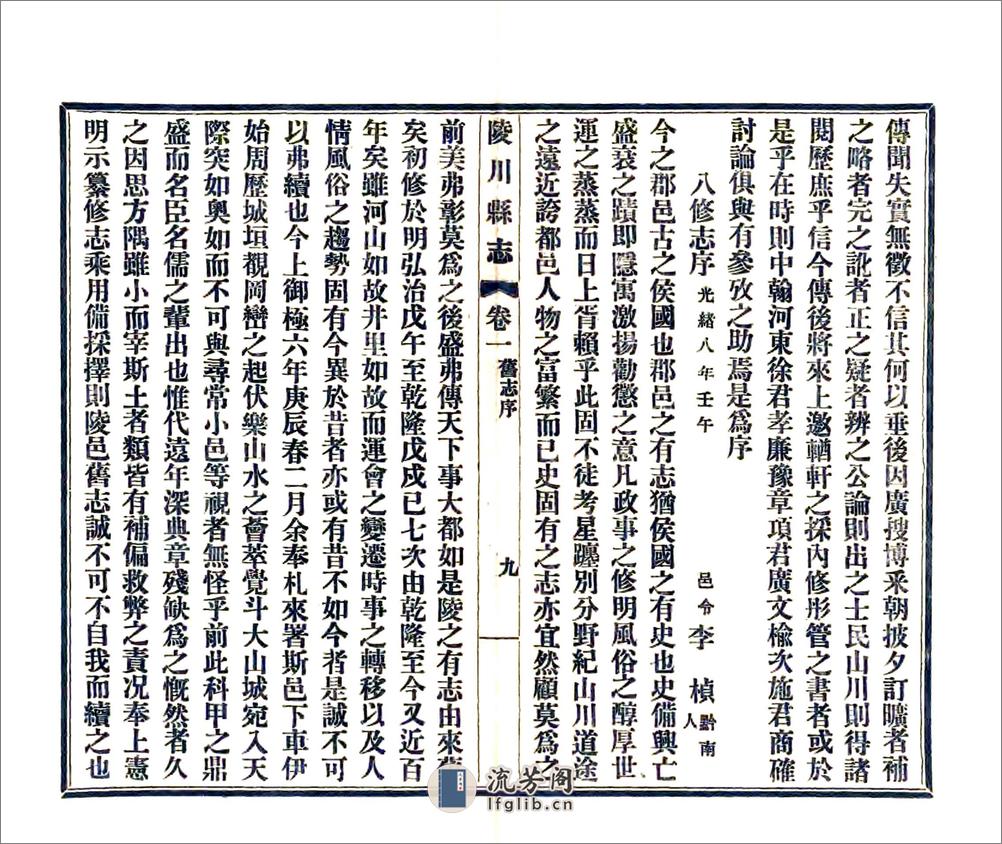 傳聞失實無徵不信其何以垂後因廣搜博采朝披夕訂曠者補
之略者完之訛者正之疑者辨之公論則出之士民山川則得諸
閱歷庶乎信今傳後將來上邀輶軒之採內修彤管之書者或於
是乎在時則中翰河東徐君孝廉豫章項君廣文榆次施君商確
討論俱與有參攷之助焉是爲序
八修志序 光緒八年壬午 邑令李楨黔南人
今之郡邑古之侯國也郡邑之有志猶侯國之有史也史備興亡
盛衰之蹟即隱寓激揚勸懲之意凡政事之修明風俗之醇厚世
運之蒸蒸而日上胥賴乎此固不徒考星躔別分野紀山川道途
之遠近誇都邑人物之富繁而已史固有之志亦宜然顧莫爲之
陵川縣志 卷一 舊志序 九
前美弗彰莫爲之後盛弗傳天下事大都如是陵之有志由來舊
矣初修於明弘治戊午至乾隆戊戌已七次由乾隆至今又近百
年矣雖河山如故井里如故而運會之變遷時事之轉移以及人
情風俗之趨勢固有今異於昔者亦或有昔不如今者是誠不可
以弗續也今上御極六年庚辰春二月余奉札來署斯邑下車伊
始周歷城垣覩岡巒之起伏樂山水之薈萃覺斗大山城宛入天
際突如奧如而不可與尋常小邑等視者無怪乎前此科甲之鼎
盛而名臣名儒之輩出也惟代遠年深典章殘缺爲之慨然者久
之因思方隅雖小而宰斯土者類皆有補偏救弊之責况奉上憲
明示纂修志乘用備採擇則陵邑舊志誠不可不自我而續之也
流芳阁
lfglib.cn